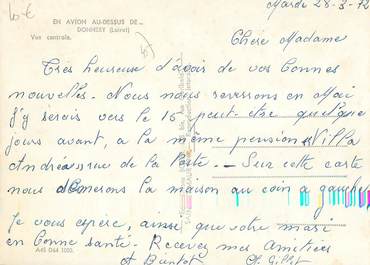 10€
Mardi 28-3-72
EN AVION AU-DESSUS DE...
DONNERY (Loiret)
Vue centrale.
Chère Madame
Très heureuse d'avoir de vos bonnes
nouvelles. Nous nous reverrons en Mai
J'y serais vers le 15 peut-être quelque
jours avant, a la même pension "Villa
Andréa" rue de la Poste. - Sur cette carte
nous demeurons la maison au coin a gauche
Je vous espère, ainsi que votre mari
en bonne santé. Recevez mes Amitiées
A Bientot
Ch. Gillet
A45 D64 1000.